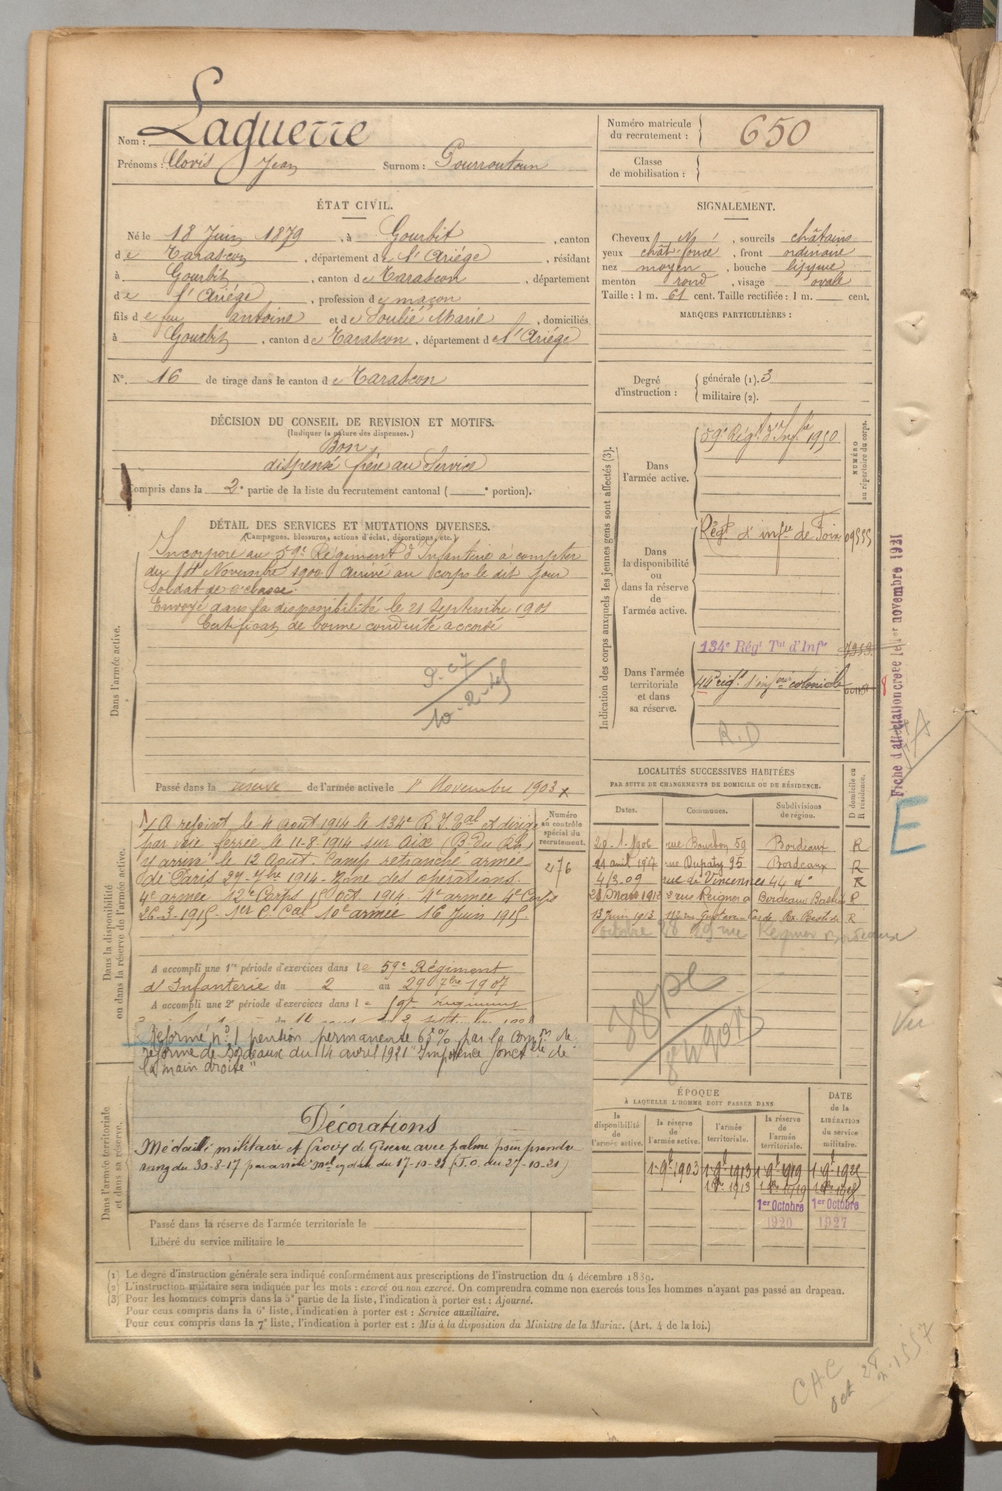 Nom : Laguerre
Prénoms : Clovis Jean Surnom : Pourroutoun
Numéro matricule du recrutement : 650
Classe de mobilisation :
ÉTAT CIVIL.
Né le 18 Juin 1879, à Gourbit, canton
de Tarascon, département de l'Ariège, résidant
à Gourbit, canton de Tarascon, département
de l'Ariège, profession de maçon
fils de feu antoine et de Soulié Marie, domiciliés
à Gourbit, canton de Tarascon, département de l'Ariège
N° 16 de tirage dans le canton de Tarascon
SIGNALEMENT.
Cheveux N, sourcils châtains
yeux chât. foncé, front ordinaire
nez moyen, bouche moyenne
menton rond, visage ovale
Taille : 1 m. 61 cent. Taille rectifiée : 1 m. cent.
MARQUES PARTICULIÈRES :
Degré d'instruction : générale (1). 3
militaire (2).
DÉCISION DU CONSEIL DE REVISION ET MOTIFS.
(Indiquer la nature des dispenses.)
Bon
dispensé frère au Service
Compris dans la 2e partie de la liste du recrutement cantonal ( e portion).
DÉTAIL DES SERVICES ET MUTATIONS DIVERSES.
(Campagnes, blessures, actions d'éclat, décorations, etc.)
Dans l'armée active.
Incorporé au 59e Régiment d'Infanterie à compter
du Novembre 1900 Arrivé au corps le dit jour
Soldat de 2e classe
Envoyé dans la disponibilité le 21 Septembre 1901
Certificat de bonne conduite accordé
Passé dans la réserve de l'armée active le 1er Novembre 1903
Indication des corps auxquels les jeunes gens sont affectés (3).
NUMÉRO au répertoire du corps.
Dans l'armée active.
59e Régt d'Infrie 1950
Dans la disponibilité ou dans la réserve de l'armée active.
Régt d'infrie de Foix 09555
Dans l'armée territoriale et dans sa réserve.
134e Régt Tal d'Infie
44e régt d'infrie coloniale
R.D
Fiche d'affectation créée le 1er novembre 1921
E
Vu
Dans la disponibilité ou dans la réserve de l'armée active.
Numéro au contrôle spécial du recrutement.
276
A rejoint le 4 août 1914 le 134e R.I.Tal et dirigé
par voie ferrée le 11-8-1914 sur Aix (B. du Rh.)
y arrivé le 12 Août. Camp retranché armée
de Paris 27-7bre 1914. Zone des opérations.
4e armée 12e Corps 15 Oct. 1914 4e armée 4e Corps
26-3-1915. 1er C. Cal 10e armée 16 Juin 1915.
A accompli une 1re période d'exercices dans le 59e Régiment
d'Infanterie du 2 au 29 7bre 1907
A accompli une 2e période d'exercices dans le
Réformé n° 1 pension permanente 65% par la Comon de
réforme de Bordeaux du 14 avril 1921 "Impotence fonctelle de
la main droite"
Décorations
Médaille militaire et Croix de Guerre avec palme pour prendre
rang du 30-8-17 par arrêté du 17-10-21 (J.O. du 27-10-21)
Dans l'armée territoriale et dans sa réserve.
Passé dans la réserve de l'armée territoriale le
Libéré du service militaire le
LOCALITÉS SUCCESSIVES HABITÉES
PAR SUITE DE CHANGEMENTS DE DOMICILE OU DE RÉSIDENCE.
Dates. Communes. Subdivisions de région. D domicile ou R résidence.
29-1-1906 rue Bourbon 59 Bordeaux R
rue Dupaty 35 Bordeaux R
4/3.09 rue de Vincennes 44 do R
Mars 1912 rue Peignon Bordeaux Bastide R
13 Juin 1913 R
ÉPOQUE
À LAQUELLE L'HOMME DOIT PASSER DANS
la disponibilité de l'armée active. la réserve de l'armée active. l'armée territoriale. la réserve de l'armée territoriale.
DATE de la LIBÉRATION du service militaire.
1-9b 1903 1-9b 1913 1-9b 1919 1-9b 1925
1er Octobre 1920 1er Octobre 1927
(1) Le degré d'instruction générale sera indiqué conformément aux prescriptions de l'instruction du 4 décembre 1889.
(2) L'instruction militaire sera indiquée par les mots : exercé ou non exercé. On comprendra comme non exercés tous les hommes n'ayant pas passé au drapeau.
(3) Pour les hommes compris dans la 5e partie de la liste, l'indication à porter est : Ajourné.
Pour ceux compris dans la 6e liste, l'indication à porter est : Service auxiliaire.
Pour ceux compris dans la 7e liste, l'indication à porter est : Mis à la disposition du Ministre de la Marine. (Art. 4 de la loi.)